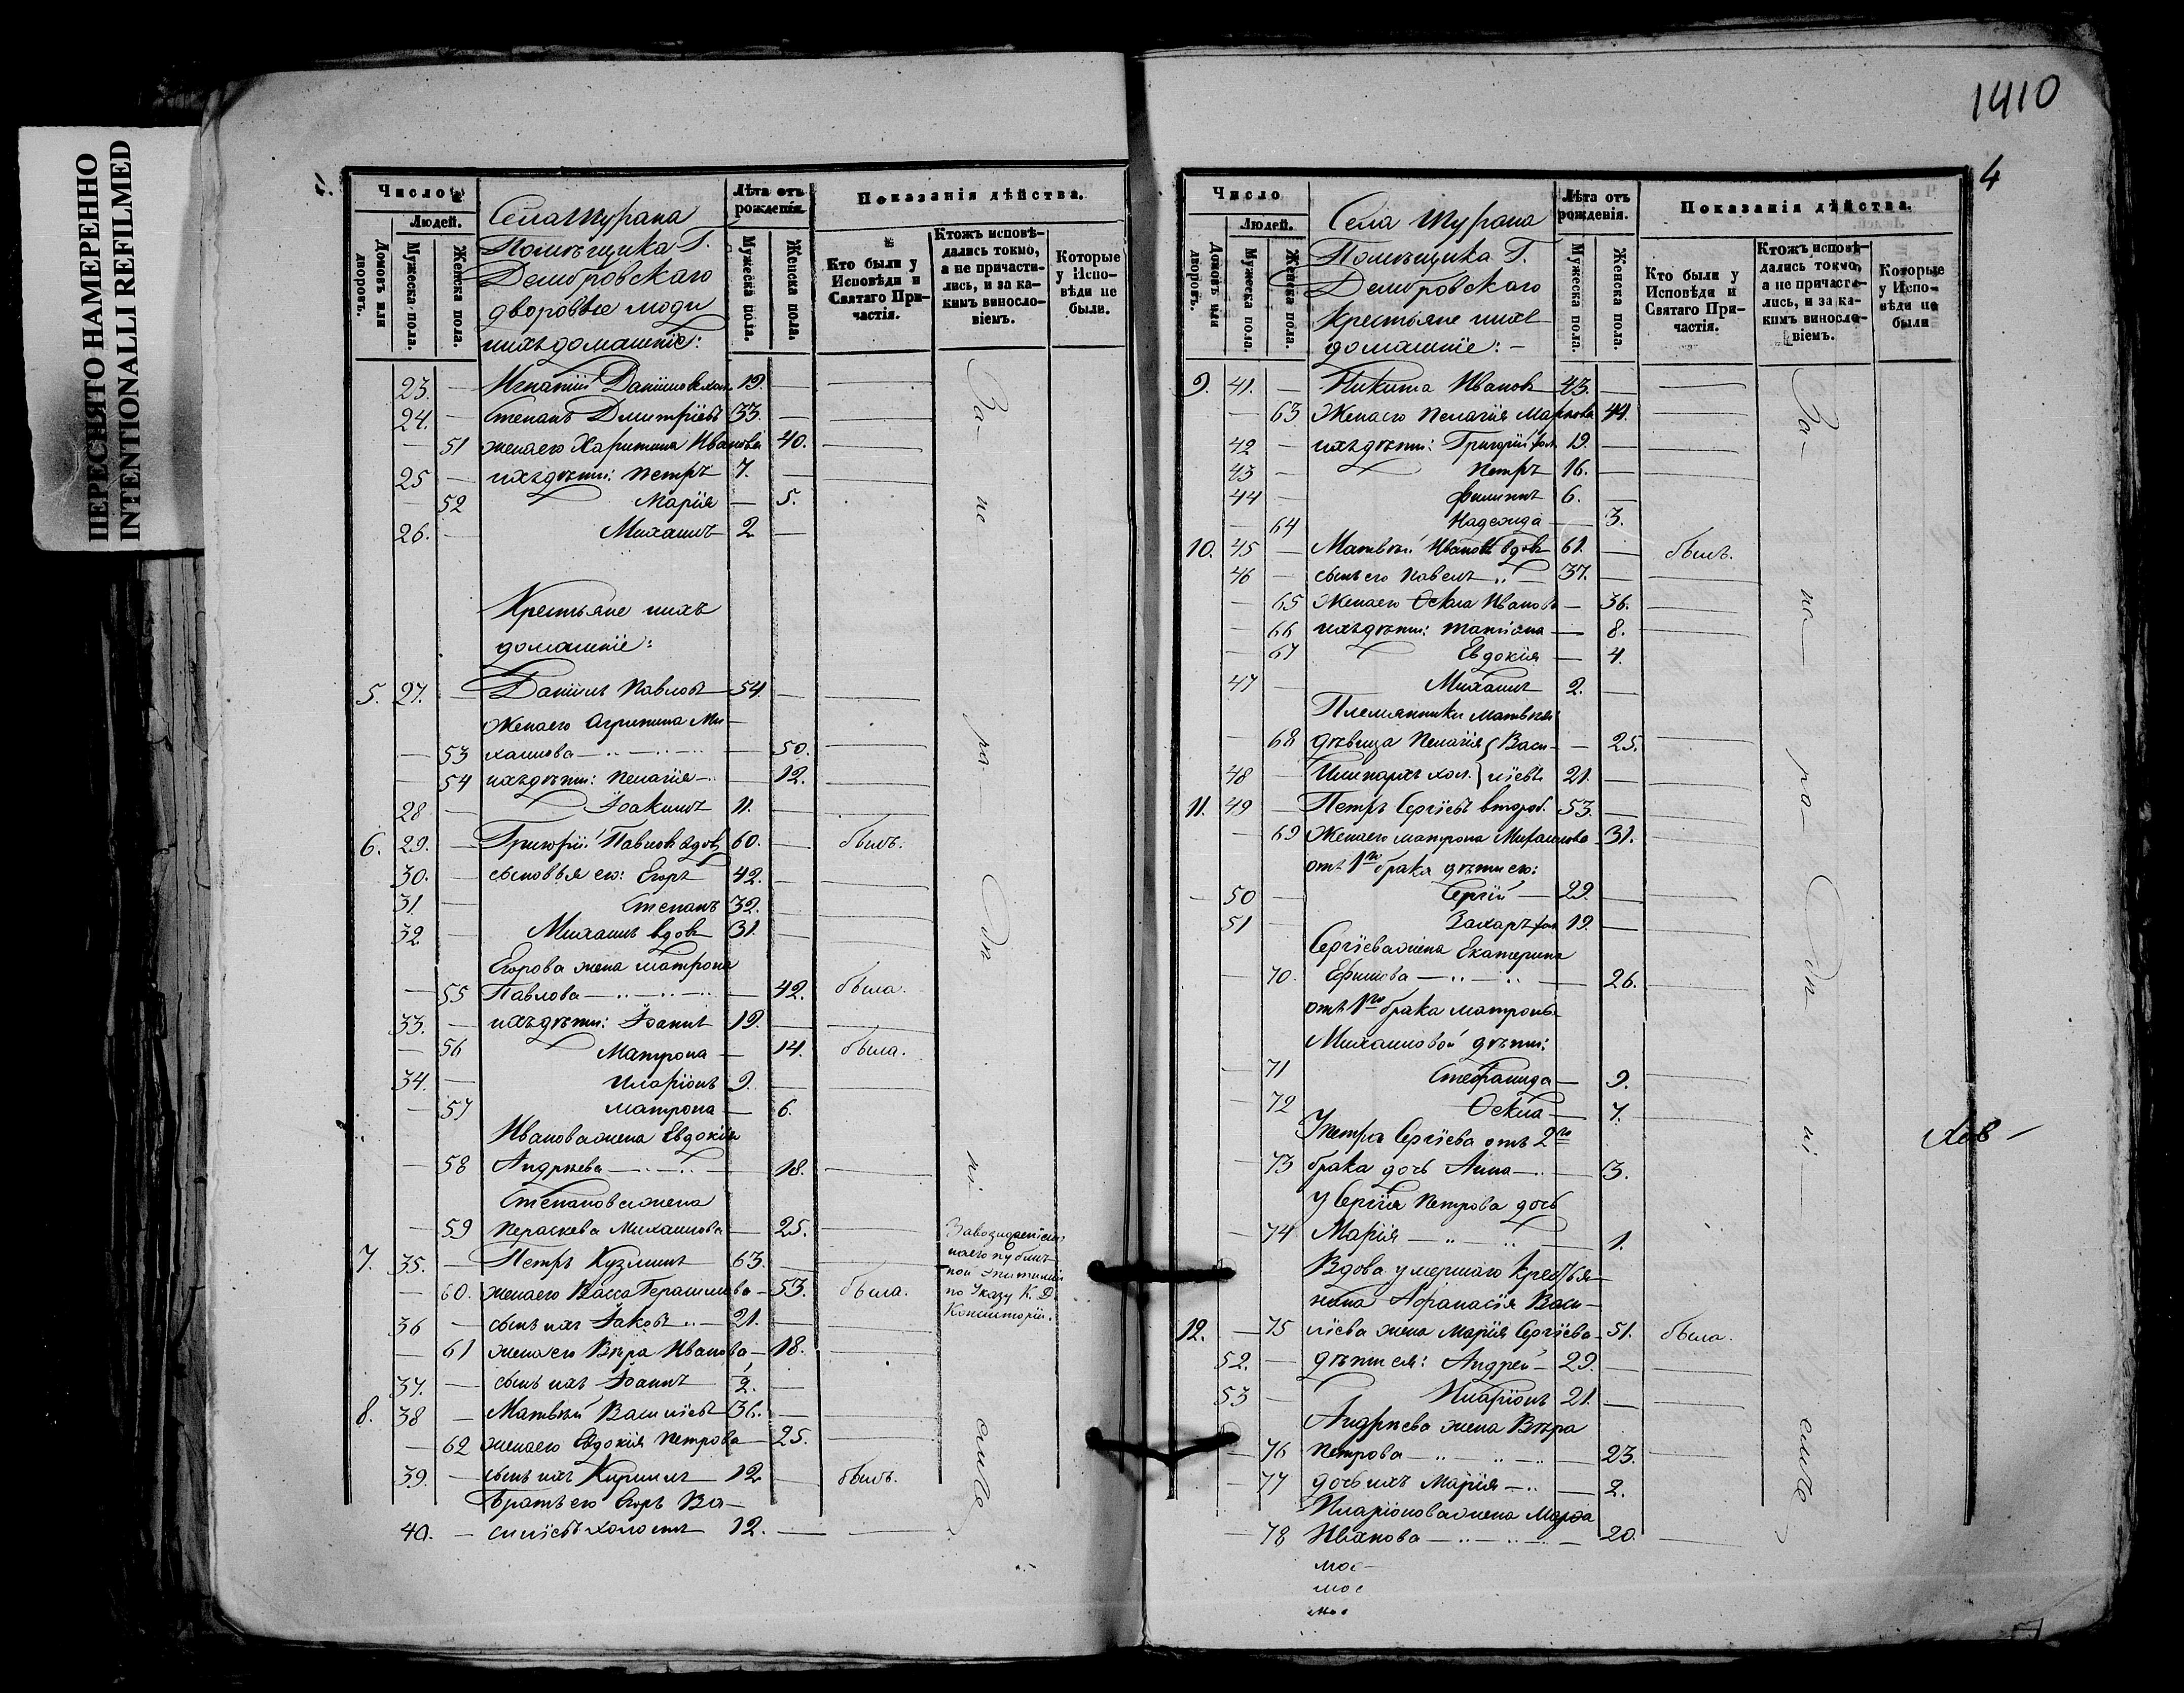 ПЕРЕСНЯТО НАМЕРЕННО
INTENTIONALLI REFILMED
1410
4
Число
Людей.
Домовъ или дворовъ.
Мужеска пола.
Женска пола.
Села Шурана
Помѣщика Г.
Дембровскаго
дворовые люди
и ихъ домашніе:
Лѣта отъ рожденія.
Мужеска пола.
Женска пола.
Показанія дѣйства.
Кто были у Исповѣди и Святаго Причастія.
Ктожъ исповѣдались токмо, а не причастились, и за какимъ винословіемъ.
Которые у Исповѣди не были.
23. — Игнатій Даниловъ хол. 19. —
24. — Степанъ Дмитріевъ 33. —
— 51 жена его Харитина Иванова 40.
25 — ихъ дѣти: Петръ 7. —
— 52 Марія — 5.
26. — Михаилъ 2 —
Крестьяне и ихъ
домашніе:
5. 27. — Даніилъ Павловъ 54. —
жена его Агрипина Ми-
— 53 хаилова — 50.
— 54 ихъ дѣти: Пелагія — 12.
28 — Іоакимъ 11. —
6. 29. — Григорій Павловъ вдов. 60. — былъ.
30. — сыновья его: Егоръ 42. —
31 — Степанъ 32. —
32 — Михаилъ вдовъ 31. —
Егорова жена Матрона
— 55 Павлова — 42. была.
33. — ихъ дѣти: Іоаннъ 19. —
— 56 Матрона — 14. была.
34. — Иларіонъ 9. —
— 57 Матрона — 6.
Иванова жена Евдокія
— 58 Андреева — 18.
Степанова жена
— 59 Пераскева Михаилова — 25.
7. 35. — Петръ Кузминъ 63. —
— 60. жена его Васса Герасимова — 53. была.
36 — сынъ ихъ Іаковъ 21. —
— 61 жена его Вѣра Иванова — 18.
37. — сынъ ихъ Іоаннъ 2. —
8. 38 — Матвѣй Васильевъ 36. —
— 62 жена его Евдокія Петрова — 25.
39. — сынъ ихъ Кириллъ 12 — былъ.
Братъ его Егоръ Ва-
40. — сильевъ холостъ 12. —
За не ра дѣ ні емъ
по Указу К. Д.
Консисторіи.
Число
Людей.
Домовъ или дворовъ.
Мужеска пола.
Женска пола.
Села Шурана
Помѣщика Г.
Дембровскаго
Крестьяне и ихъ
домашніе: —
Лѣта отъ рожденія.
Мужеска пола.
Женска пола.
Показанія дѣйства.
Кто были у Исповѣди и Святаго Причастія.
Ктожъ исповѣдались токмо, а не причастились, и за какимъ винословіемъ.
Которые у Исповѣди не были
9. 41. — Никита Ивановъ 43. —
— 63 Жена его Пелагія Маркова 44.
42 — ихъ дѣти: Григорій хол. 19. —
43 — Петръ 16. —
44 — Филиппъ 6. —
— 64 Надежда — 3.
10. 45 — Матвѣй Ивановъ вдовъ 61. — былъ.
46 — сынъ его Павелъ 37. —
— 65 Жена его Ѳекла Иванова — 36.
— 66 ихъ дѣти: Татіана — 8.
— 67 Евдокія — 4.
47 — Михаилъ 2. —
Племянники Матвѣя
— 68 дѣвица Пелагія } Васи- — 25.
48 — хол. } ліевы 21. —
11. 49 — Петръ Сергіевъ второб. 53. —
— 69 Жена его Матрона Михаилова 31.
отъ 1го брака дѣти его:
— 50 — Сергій — 29. —
51 — Захаръ хол. 19. —
Сергіева жена Екатерина
— 70. Ефимова — 26.
отъ 1го брака Матроны
Михаиловой дѣти:
— 71 Стефанида — 9.
— 72 Ѳекла — 7.
У Петра Сергіева отъ 2го
— 73 брака дочь Анна — 3.
у Сергія Петрова дочь
— 74 Марія — 1.
Вдова умершаго крестья-
нина Афанасія Васи-
12. — 75 ліева жена Марія Сергіева — 51. была.
52. — дѣти ея: Андрей — 29. —
53 — Иларіонъ 21. —
Андреева жена Вѣра
— 76 Петрова — 23.
— 77 дочь ихъ Марія — 2.
Иларіонова жена Марѳа
— 78 Иванова — 20.
За не ра дѣ ні емъ